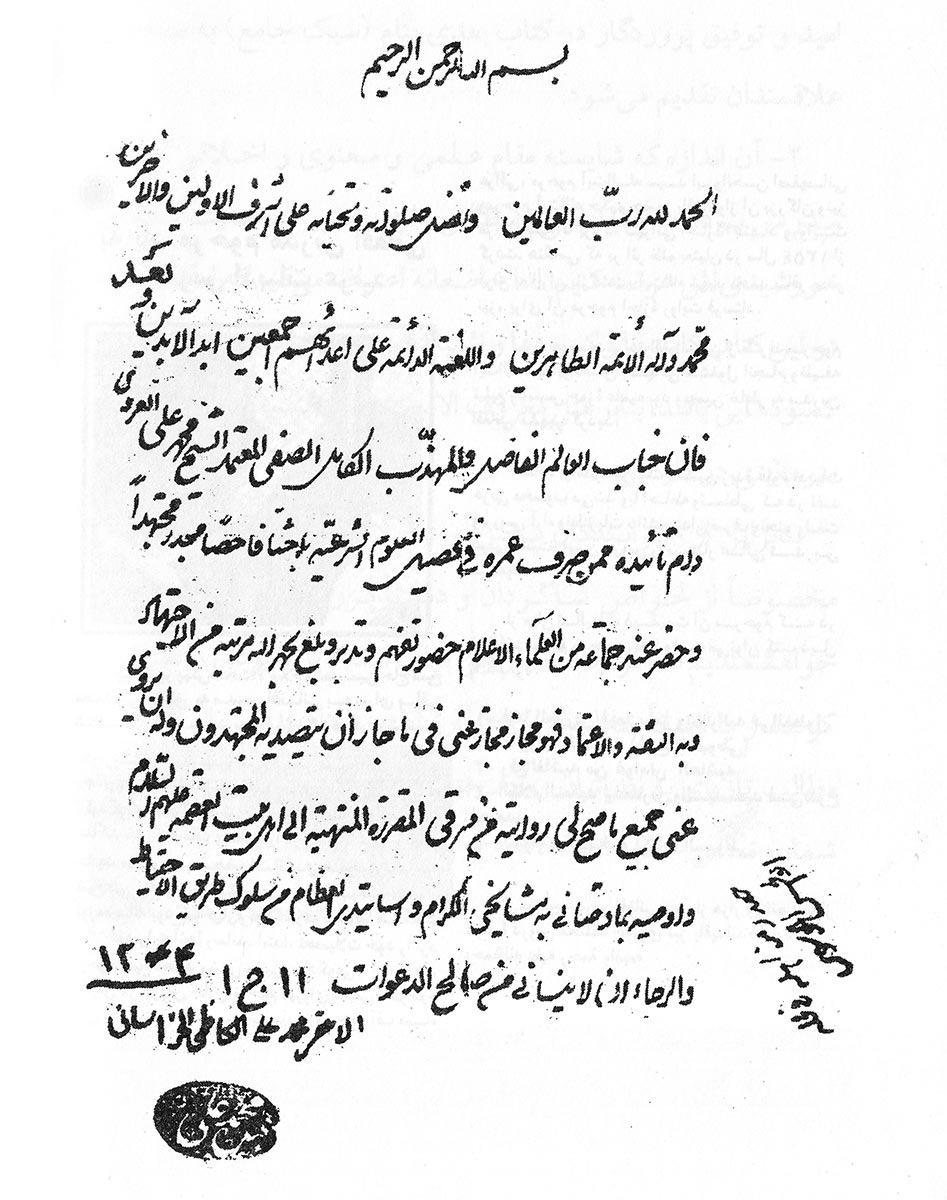 بسم الله الرحمن الرحيم
الحمد لله رب العالمين وافضل صلواته وتحياته على اشرف الاولين والاخرين
محمد واله الأئمة الطاهرين واللعنة الدائمة على اعدائهم اجمعين ابد الآبدين وبعد
فان جناب العالم الفاضل والمهذب الكامل الصفي المعتمد الشيخ محمد علي الغروي
دام تأييده ممن صرف عمره في تحصيل العلوم الشرعيه باحثا فاحصا مجدا مجتهدا
وحضر عند جماعة من العلماء الاعلام حضور تفهم وتدبر وبلغ بحمد الله مرتبه من الاجتهاد
وبه الثقة والاعتماد فهو مجاز مجاز عني في ما جاز أن يتصديه المجتهدون وله ان يروي
عني جميع ما صح لي روايته من طرقي المقررة المنتهيه الى اهل بيت العصمه عليهم السلام
واوصيه بما وصاني به مشايخي الكرام واساتيدي العظام من سلوك طريق الاحتياط
والرجاء ان لا ينساني من صالح الدعوات ١١ ج ١
١٣٦٤
الاحقر محمد علي الكاظمي الخراساني